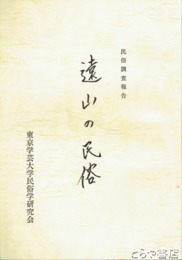 民俗調査報告
遠山の民俗
東京学芸大学民俗学研究会
とらや書店